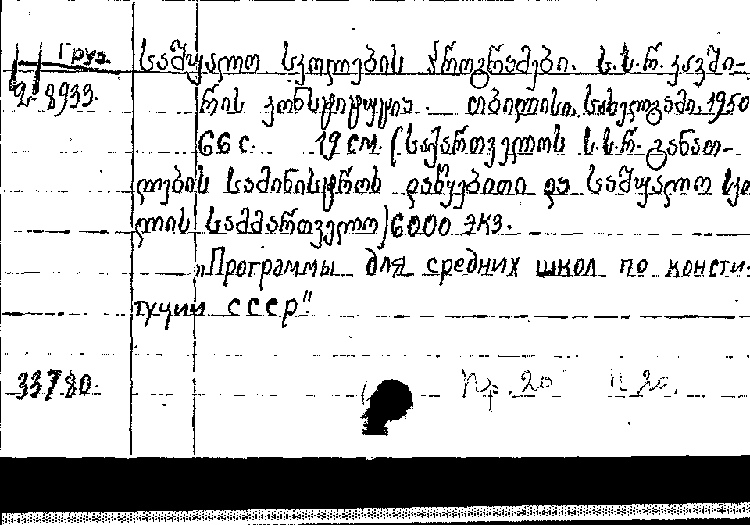 Груз. საშუალო სკოლების პროგრამები. ს.ს.რ. კავში-
2-8933. რის კონსტიტუცია. თბილისი, სახელგამი, 1950
66 с. 19 см. (საქართველოს ს.ს.რ. განათ-
ლების სამინისტროს დაწყებითი და საშუალო სკო
ლის სამმართველო) 6000 экз.
„Программы для средних школ по консти-
туции СССР"
33780. Пр. 20 П. 20.